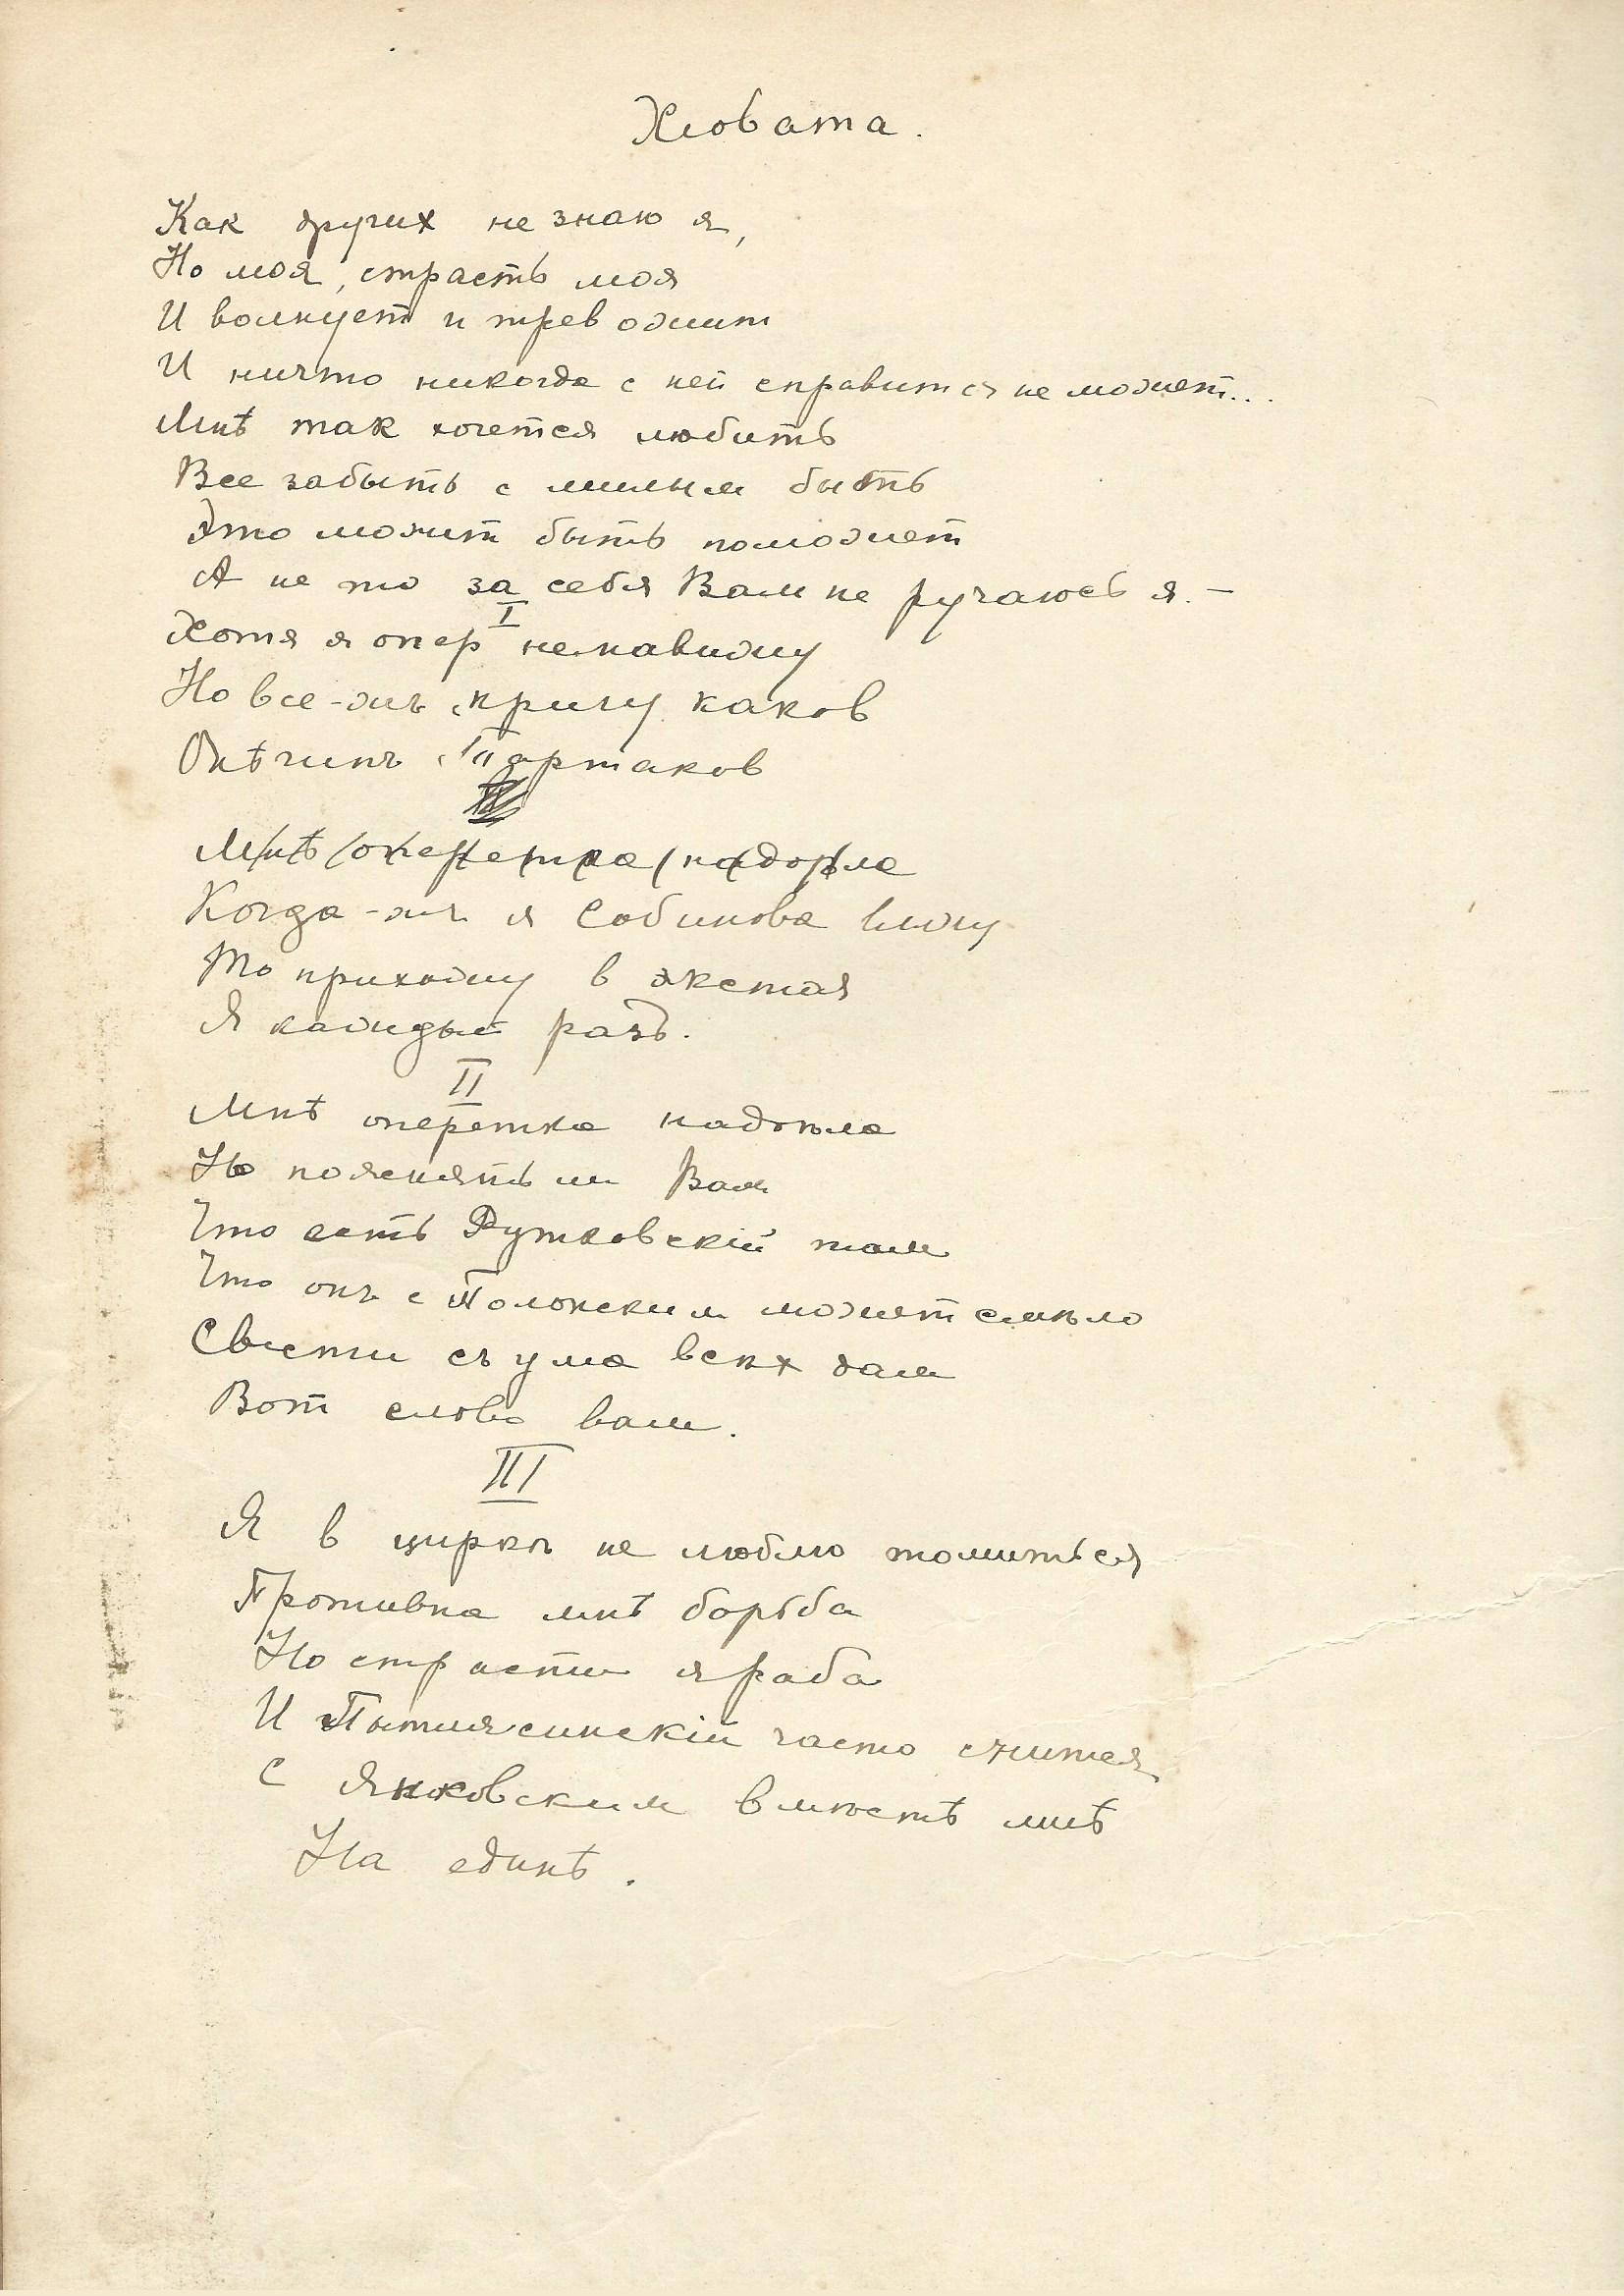 Как других не знаю я,
Но моя, страсть моя
И волнует и тревожит
И ничто никогда с ней справится не можетъ...
Мнѣ так хочется любить
Все забыть с милым быть
Это можит быть поможет
А не то за себя Вам не ручаюсь я. –
I
Хотя я опер ненавижу
Но все-жъ кричу каков
Онѣгинъ Тартаков
Мнѣ оперетка надоѣла
Когда-жъ я Собинова вижу
То прихожу в экстаз
Я каждый разъ.
II
Мнѣ оперетка надоѣла
Но пояснять ли Вам
Что есть Рутковскій там
Что онъ с Полонским может смѣло
Свести съ ума всѣх дам
Вот слово вам.
III
Я в циркѣ не люблю томиться
Противна мнѣ борьба
Но страсти я раба
И Пытлясинскій часто снится
С Янковским вмѣстѣ мнѣ
На единѣ.